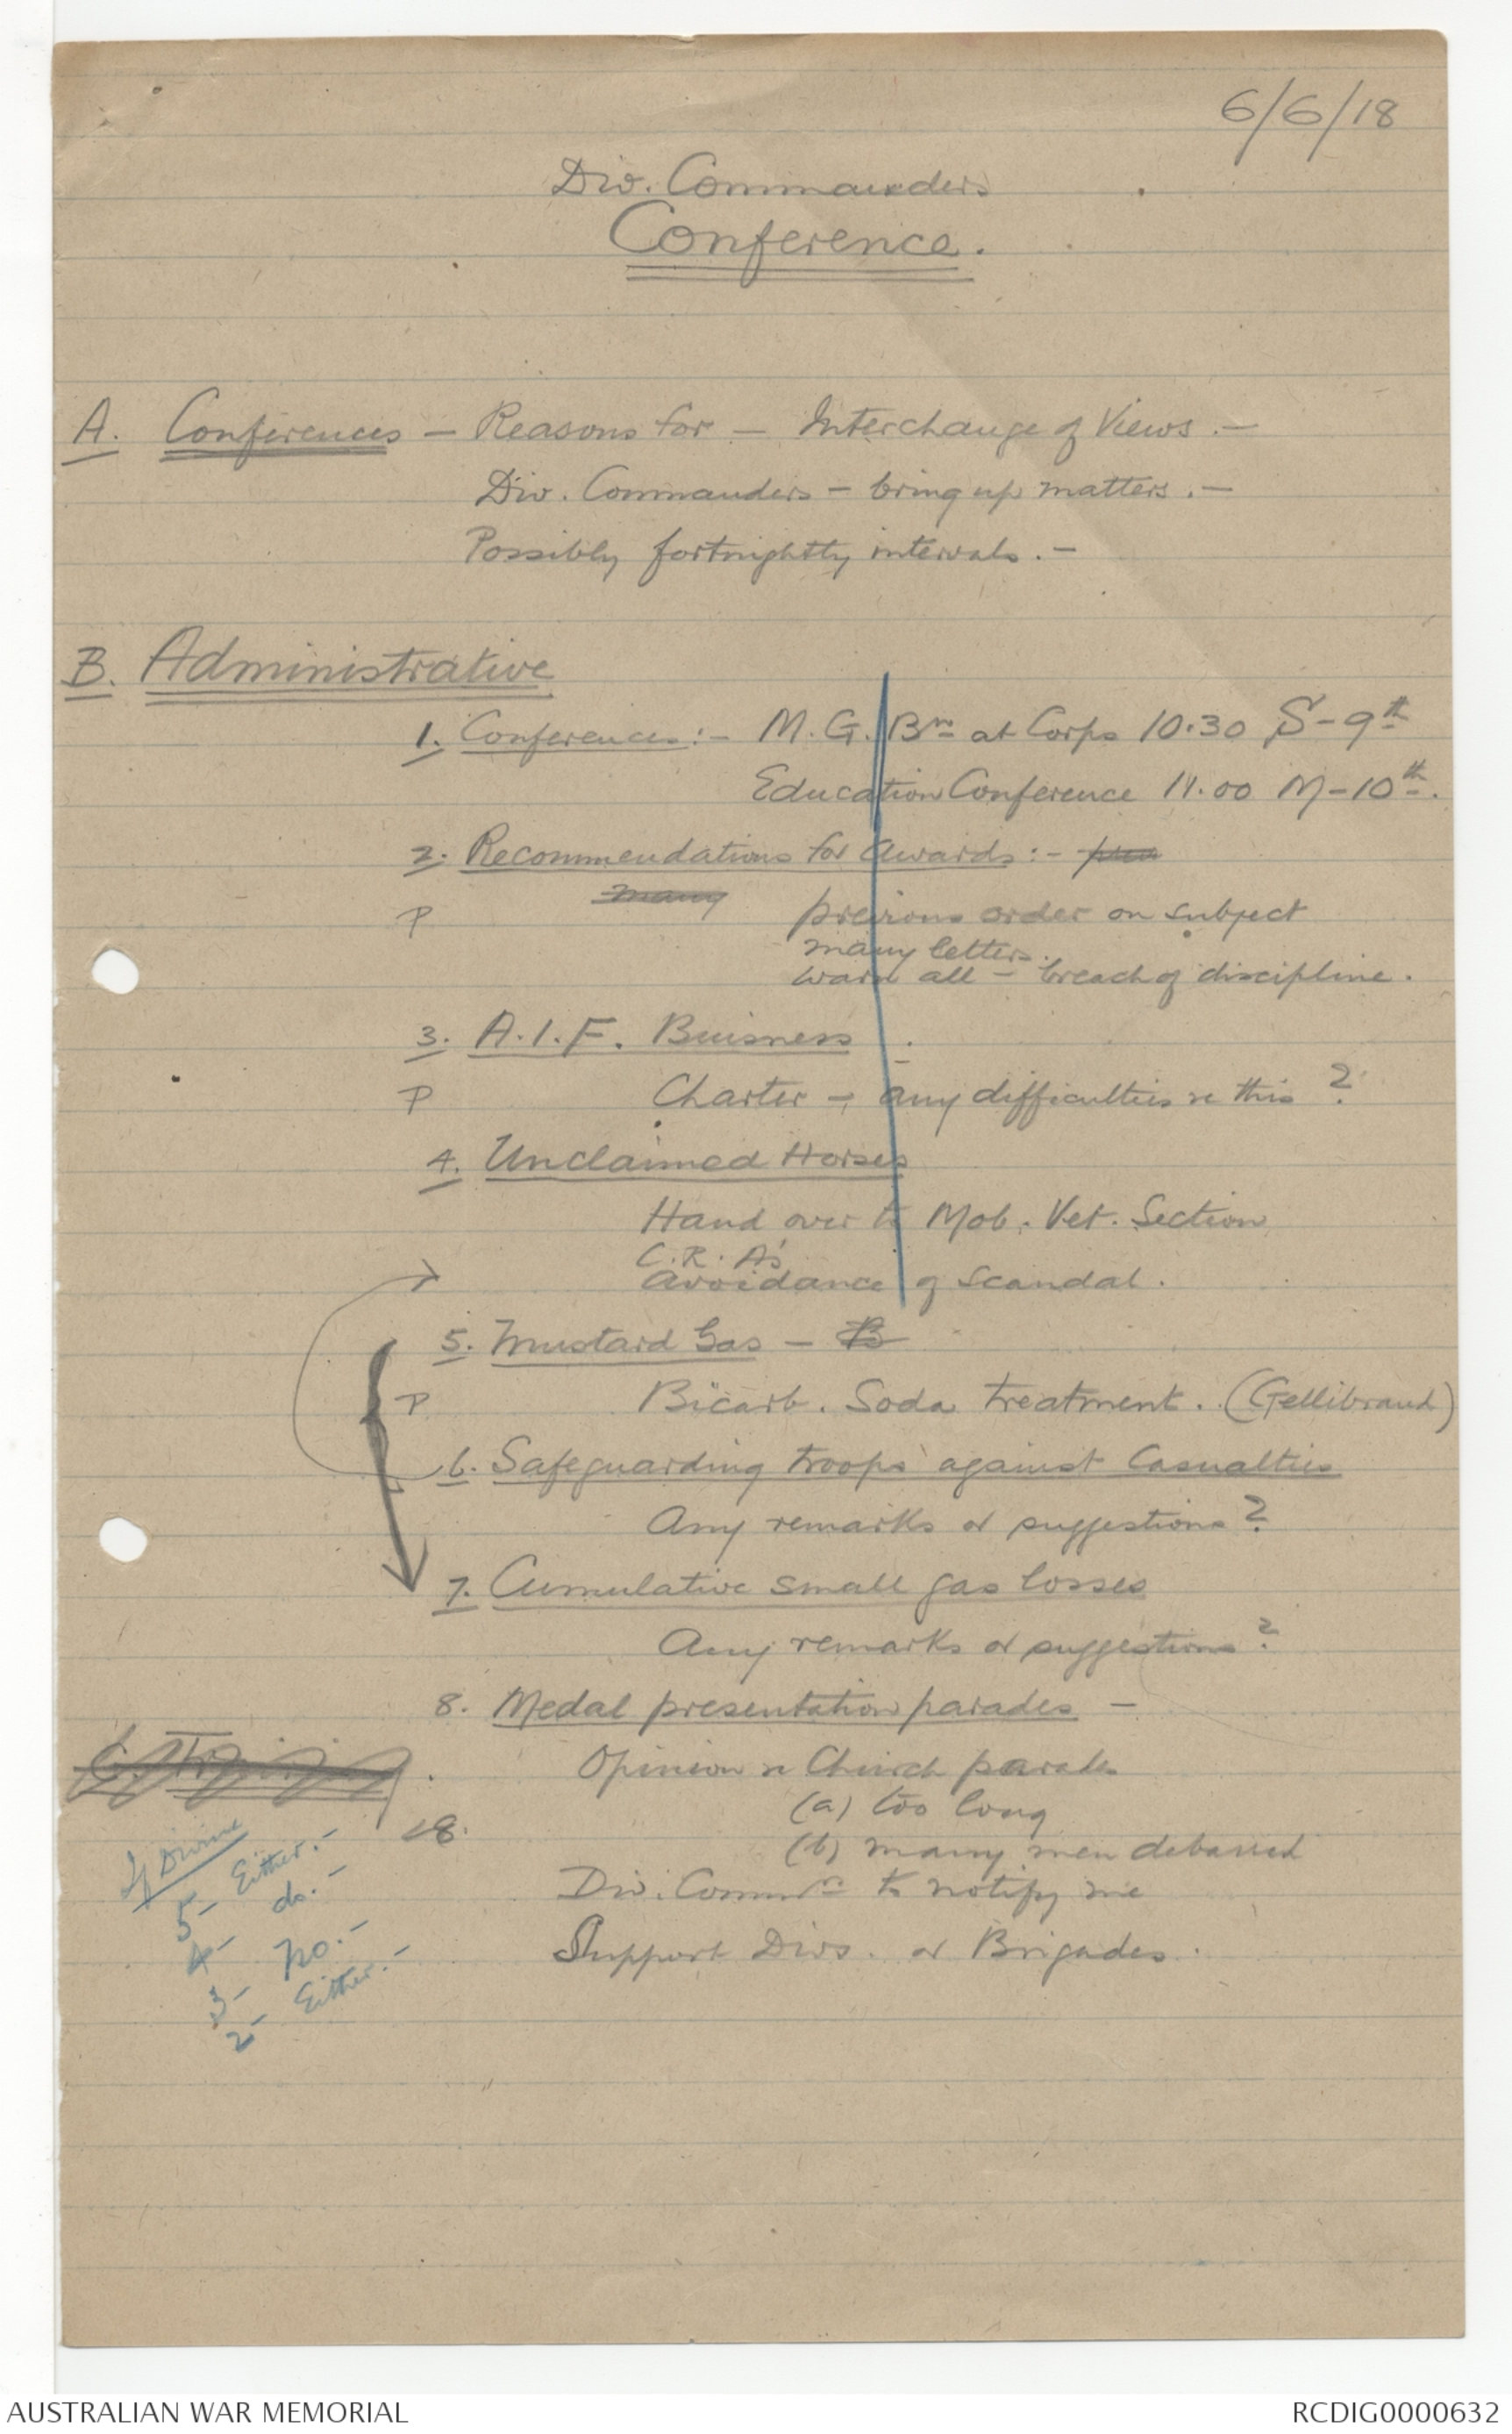 6/6/18
Div. Commanders
Conference.
A. Conferences – Reasons for – Interchange of Views. –
Div. Commanders – bring up matters. –
Possibly fortnightly intervals. –
B. Administrative
1. Conferences:- M.G. Bn at Corps 10.30 S-9th
Education Conference 11.00 M-10th.
2. Recommendations for Awards:- prev
many
P previous order on subject
many letters.
warn all – breach of discipline.
3. A.I.F. Buisness
P Charter – any difficulties re this?
4. Unclaimed Horses
Hand over to Mob. Vet. Section
C.R.A's
Avoidance of scandal.
5. Mustard Gas – B
P Bicarb. Soda treatment. (Gellibrand)
6. Safeguarding troops against Casualties
Any remarks or suggestions?
7. Cumulative small gas losses
Any remarks or suggestions?
8. Medal presentation parades –
C. Training.
Opinion re Church parade
(a) too long
18.
(b) many men debarred
Div. Commrs to notify me
Support Divs. or Brigades.
5- Either.-
4- do.-
3- No.-
2- Either.-
AUSTRALIAN WAR MEMORIAL
RCDIG0000632